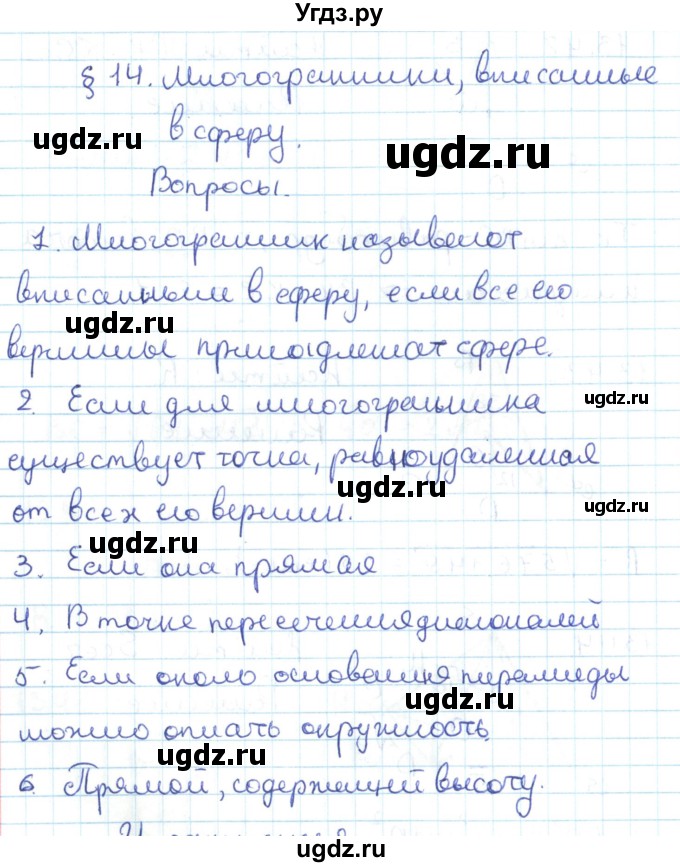 Угдз.ру
§ 14. Многогранники, вписанные
в сферу.
ugdz.ru
ugdz.ru
Вопросы.
1. Многогранник называют
вписанным в сферу, если все его
ugdz.ru
вершины принадлежат сфере.
2. Если для многогранника
ugdz.ru
существует точка, равноудаленная
ugdz.ru
от всех его вершин.
ugdz.ru
ugdz.ru
3. Если она прямая
4. В точке пересечения диагоналей
5. Если около основания пирамиды
ugdz.ru
можно описать окружность.
ugdz.ru
6. Прямой, содержащей высоту.
ugdz.ru